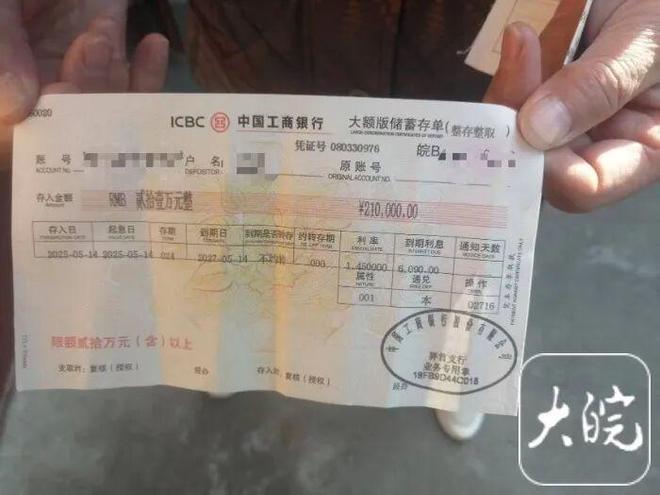 ICBC 中国工商银行 大额版储蓄存单(整存整取)
LARGE-DENOMINATION CERTIFICATES OF DEPOSIT
凭证号 080330976 皖B
账号 户名 原账号
ACCOUNT NO. DEPOSITOR ORIGINAL ACCOUNT NO.
存入金额 RMB 贰拾壹万元整 ¥210,000.00
Amount
存入日 起息日 存期 到期日 到期是否转存 约转存期 利率 到期利息 通知天数
2025-05-14 2025-05-14 024 2027-05-14 不约转 000 1.450000 6,090.00
属性 通兑 操作
001 本 02716
限额贰拾万元(含)以上
支取时:复核(授权) 经办 存入时:复核(授权) 经办
中国工商银行股份有限公司
支行
业务专用章
大皖